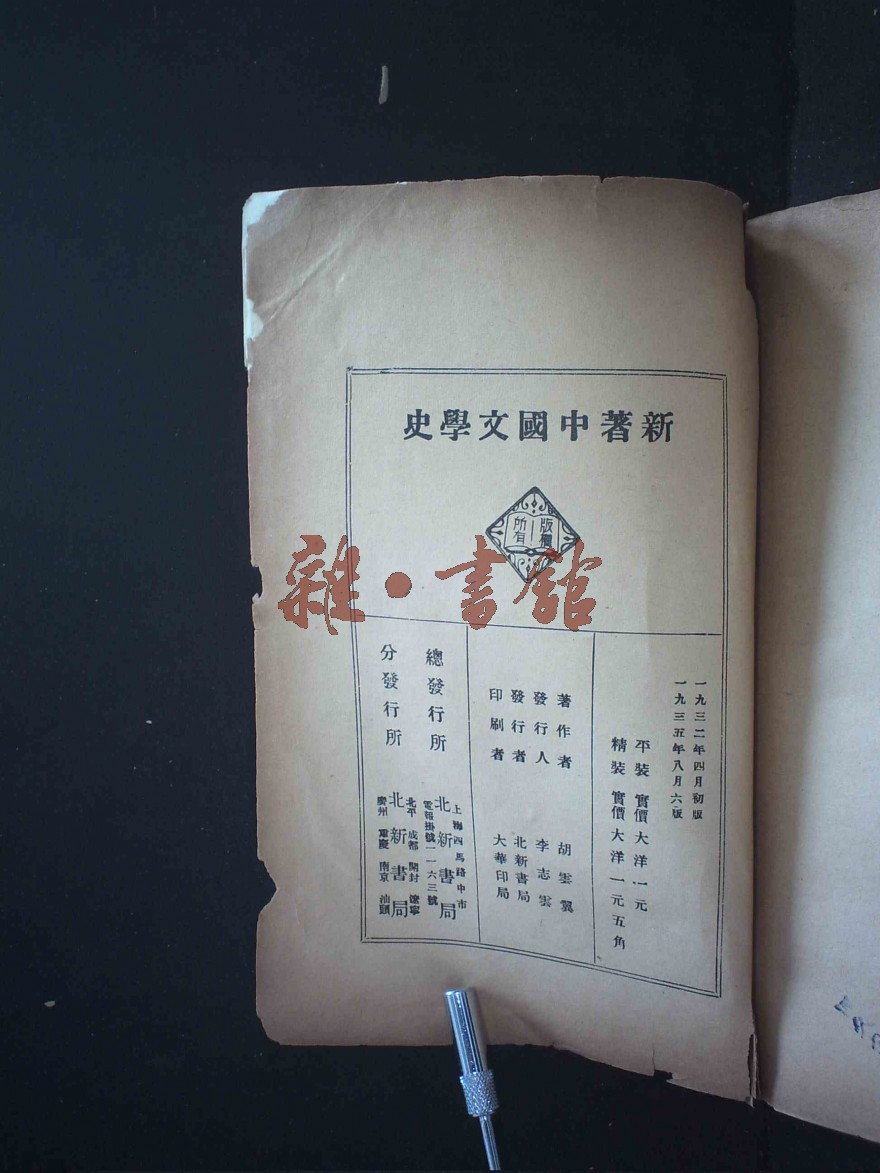 新著中國文學史
版權
所有
雜·書館
一九三二年四月初版
一九三五年八月六版
平裝 實價大洋一元
精裝 實價大洋一元五角
著作者 胡雲翼
發行人 李志雲
發行者 北新書局
印刷者 大華印局
總發行所
上海四馬路中市
北新書局
電報掛號一一六三號
分發行所
北平 成都 開封 遼寧
北新書局
廣州 重慶 南京 汕頭